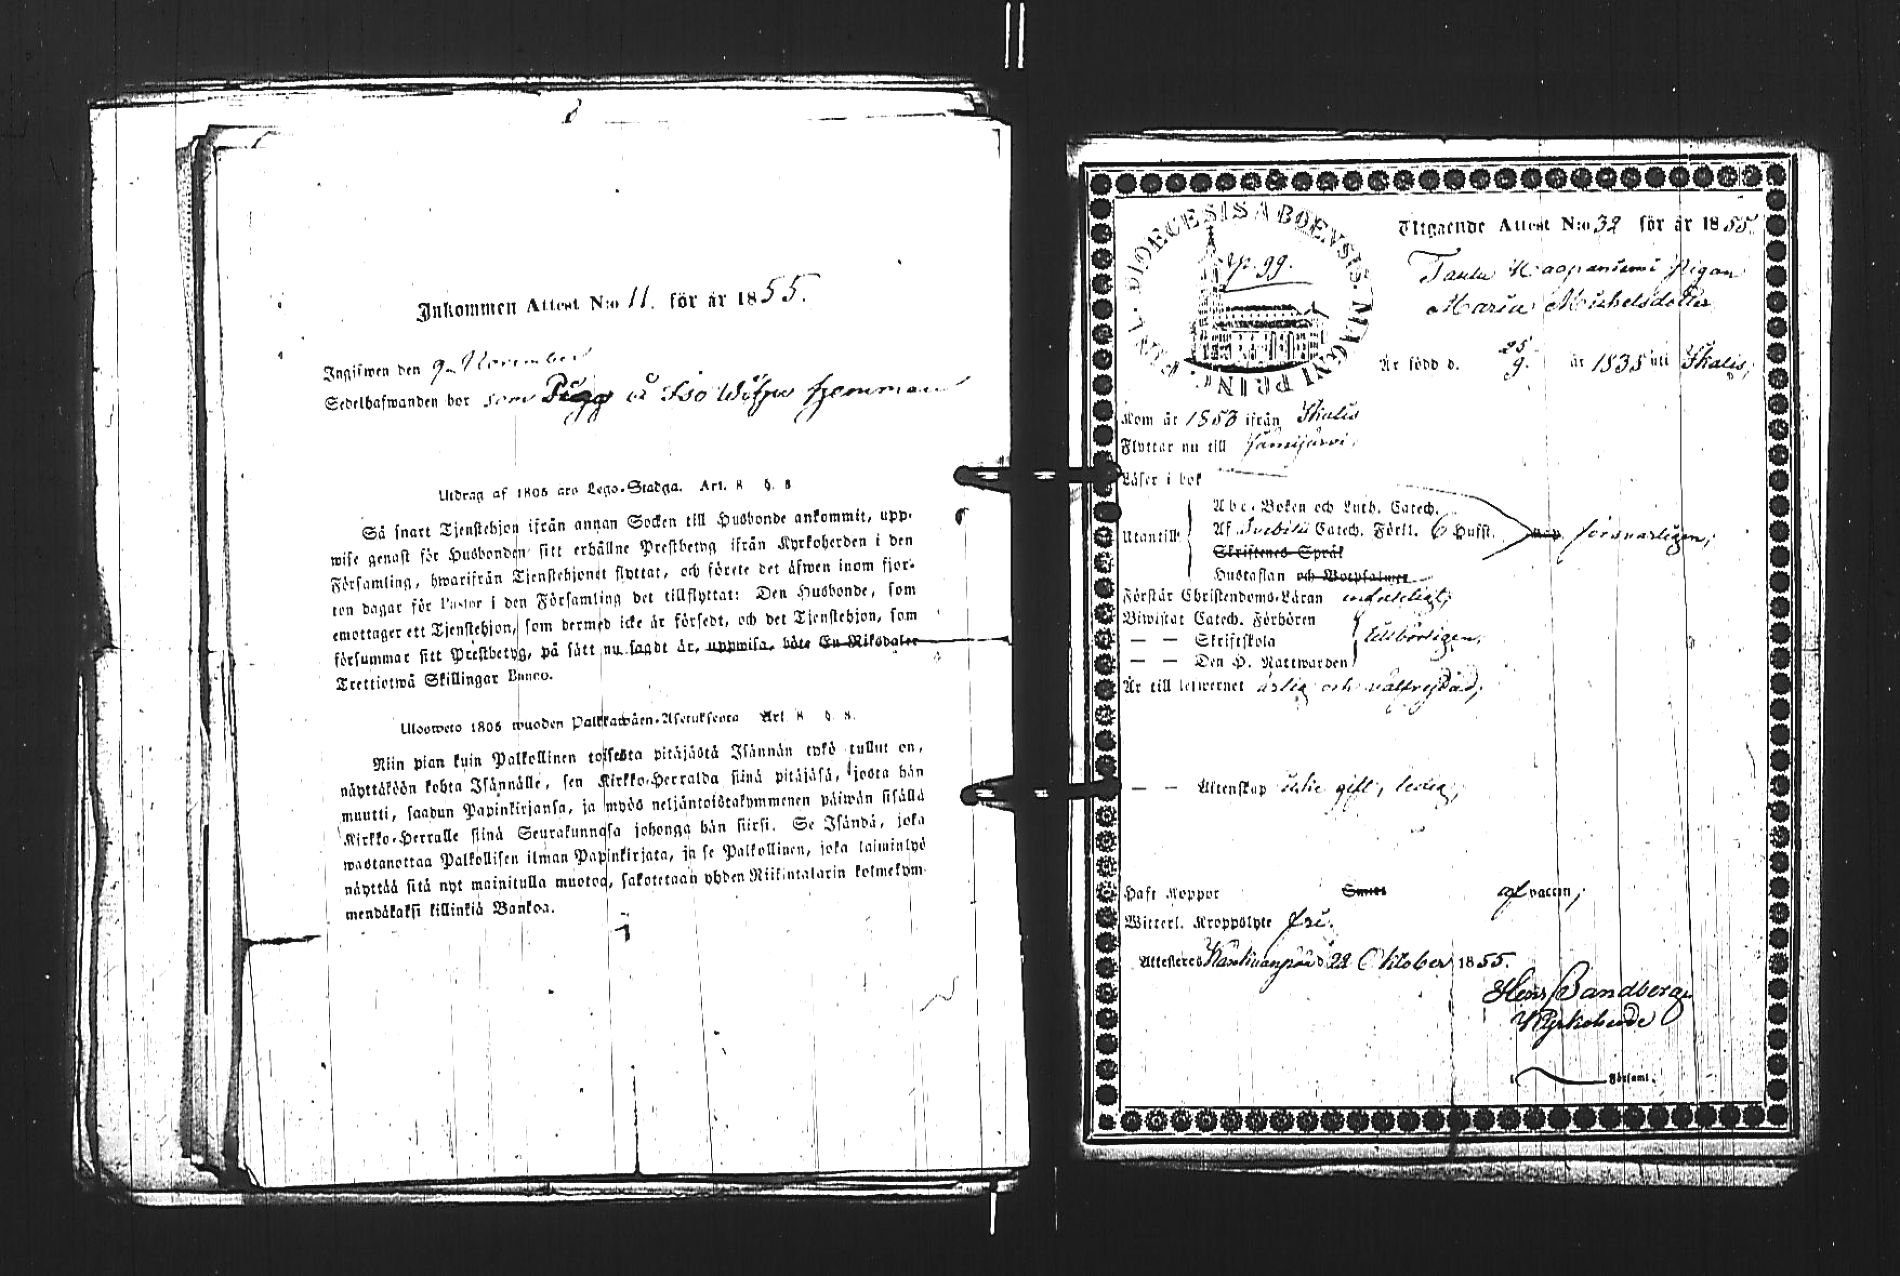 Inkommen Attest N:o 11. för år 1855.
Ingifwen den 9 November
Sedelhafwanden bor som Piga å Iso hemman
Utdrag af 1805 års Lego-Stadga. Art. 8 §. 8
Så snart Tjenstehjon ifrån annan Socken till Husbonde ankommit, upp-
wise genast för Husbonden sitt erhållne Prestbetyg ifrån Kyrkoherden i den
Församling, hwarifrån Tjenstehjonet flyttat, och förete det äfwen inom fjor-
ton dagar för Pastor i den Församling det tillflyttat: Den Husbonde, som
emottager ett Tjenstehjon, som dermed icke är försedt, och det Tjenstehjon, som
försummar sitt Prestbetyg, på sätt nu sagdt är, uppwisa, böte En Riksdaler
Trettiotwå Skillingar Banco.
Ulosweto 1805 wuoden Palkkawäen-Asetuksesta Art. 8 §. 8.
Niin pian kuin Palkollinen toisesta pitäjästä Isännän tykö tullut on,
näyttäköön kohta Isännälle, sen Kirkko-Herralda siinä pitäjäsä, josta hän
muutti, saadun Papinkirjansa, ja myös neljäntoistakymmenen päiwän sisällä
Kirkko-Herralle siinä Seurakunnasa johonga hän siirsi. Se Isändä, joka
wastanottaa Palkollisen ilman Papinkirjata, ja se Palkollinen, joka laiminlyö
näyttää sitä nyt mainitulla muotoa, sakotetaan yhden Riikintalarin kolmekym-
mendäkaksi killinkiä Bankoa.
DIOECESIS ABOENSIS MAGNI PRINC. FINL.
p. 99.
Utgående Attest N:o 32 för år 1855.
Haapaniemi Pigan
Maria Michelsdotter
Är född d. 25/9. år 1835 uti Ikalis,
Kom år 1853 ifrån Ikalis
Flyttar nu till Jämijärvi.
Läser i bok
Utantill
Abc-Boken och Luth. Catech.
Af Svebilii Catech. Förkl. 6 Hufst. försvarligen,
Skriftenes Språk
Hustaflan och Botpsalmer
Förstår Christendoms-Läran enfaldigt,
Biwistat Catech. Förhören
— — Skriftskola tillbörligen,
— — Den H. Nattwarden
Är till lefwernet ärlig och välfrejdad,
— — Äktenskap icke gift, ledig,
Haft Koppor Smitt af vaccin,
Witterl. Kroppslyte fri.
Attesteras d. 22 Oktober 1855.
Henr. Sandberg
Kyrkoherde
i Församl.